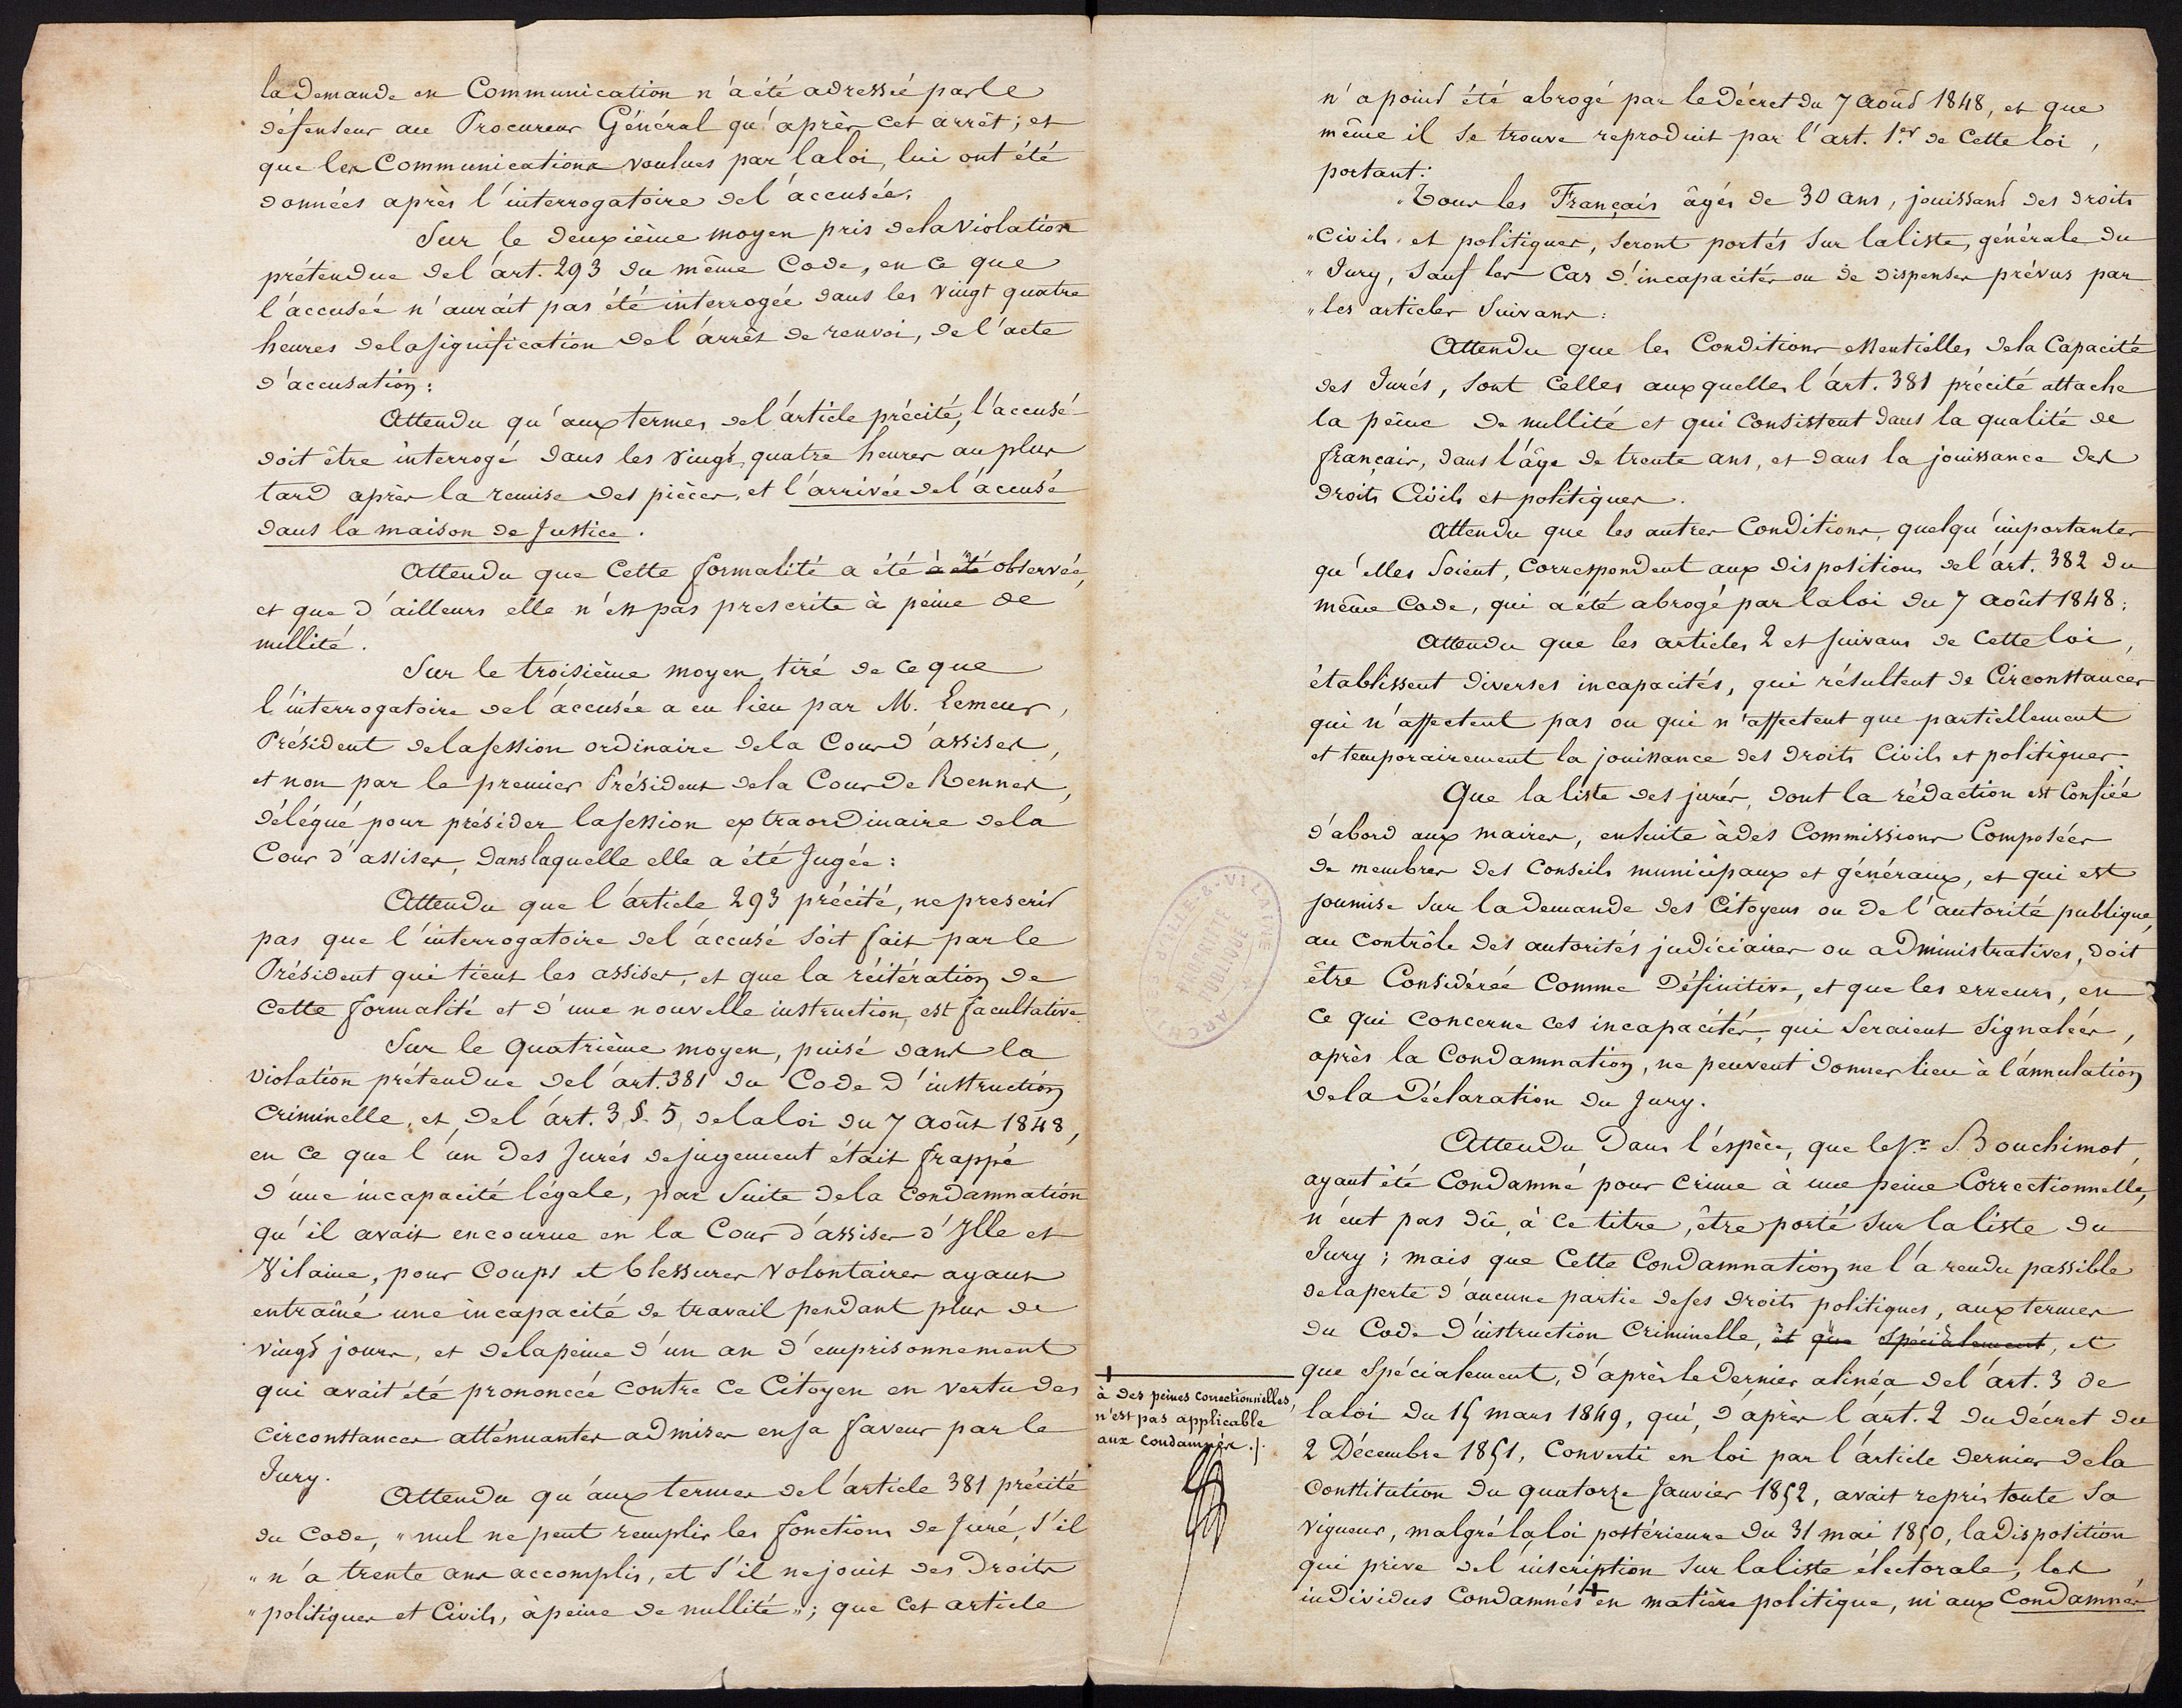 la demande en Communication n'a été adressée par le
défenseur au Procureur Général qu'après cet arrêt; et
que les Communications voulues par la loi, lui ont été
données après l'interrogatoire de l'accusée.
Sur le deuxième moyen pris de la Violation
prétendue de l'art. 293 du même Code, en ce que
l'accusée n'aurait pas été interrogée dans les vingt quatre
heures de la signification de l'arrêt de renvoi, de l'acte
d'accusation:
Attendu qu'aux termes de l'article précité, l'accusé
doit être interrogé dans les vingt quatre heures au plus
tard après la remise des pièces, et l'arrivée de l'accusé
dans la maison de Justice.
Attendu que Cette formalité a été a été observée,
et que d'ailleurs elle n'est pas prescrite à peine de
nullité.
Sur le troisième moyen, tiré de ce que
l'interrogatoire de l'accusée a eu lieu par M. Lemeur,
Président de la session ordinaire de la Cour d'assises,
et non par le premier Président de la Cour de Rennes,
délégué pour présider la session extraordinaire de la
Cour d'assises, dans laquelle elle a été Jugée:
Attendu que l'article 293 précité, ne prescrit
pas que l'interrogatoire de l'accusé soit fait par le
Président qui tient les assises, et que la réitération de
Cette formalité et d'une nouvelle instruction, est facultative.
Sur le quatrième moyen, puisé dans la
violation prétendue de l'art. 381 du Code d'instruction
Criminelle, et de l'art. 3 §. 5, de la loi du 7 Août 1848,
en ce que l'un des Jurés de jugement était frappé
d'une incapacité légale, par suite de la Condamnation
qu'il avait encourue en la Cour d'assises d'Ille et
Vilaine, pour Coups et blessures volontaires ayant
entraîné une incapacité de travail pendant plus de
vingt jours, et de la peine d'un an d'emprisonnement
qui avait été prononcée contre ce Citoyen en vertu des
circonstances atténuantes admises en sa faveur par le
Jury.
Attendu qu'aux termes de l'article 381 précité
du Code, "nul ne peut remplir les fonctions de Juré, s'il
"n'a trente ans accomplis, et s'il ne jouit des Droits
"politiques et Civils, à peine de nullité"; que Cet article
n'a point été abrogé par le Décret du 7 Août 1848, et que
même il se trouve reproduit par l'art. 1.er de Cette loi,
portant:
"Tous les Français âgés de 30 ans, jouissant des droits
"Civils et politiques, seront portés sur la liste, générale du
"Jury, sauf les Cas d'incapacités ou de dispenses prévus par
"les articles Suivans:
Attendu que les Conditions essentielles de la Capacité
des Jurés, sont Celles auxquelles l'art. 381 précité attache
la peine de nullité et qui Consistent dans la qualité de
français, dans l'âge de trente ans, et dans la jouissance des
droits Civils et politiques.
Attendu que les autres Conditions, quelqu'importantes
qu'elles Soient, Correspondent aux dispositions de l'art. 382 du
même Code, qui a été abrogé par la loi du 7 août 1848;
Attendu que les articles 2 et suivans de Cette loi,
établissent diverses incapacités, qui résultent de Circonstances
qui n'affectent pas ou qui n'affectent que partiellement
et temporairement la jouissance des droits Civils et politiques.
Que la liste des jurés, dont la rédaction est Confiée
d'abord aux maires, ensuite à des Commissions Composées
de membres des Conseils municipaux et généraux, et qui est
soumise sur la demande des Citoyens ou de l'autorité publique,
au Contrôle des autorités judiciaires ou administratives, doit
être Considérée Comme Définitive, et que les erreurs, en
Ce qui Concerne ces incapacités, qui Seraient Signalées,
après la Condamnation, ne peuvent donner lieu à l'annulation
de la Déclaration du Jury.
Attendu Dans l'espèce, que le Sr. Bouchimot,
ayant été Condamné pour Crime à une peine Correctionnelle,
n'eut pas dû, à Ce titre, être porté sur la liste du
Jury; mais que Cette Condamnation ne l'a rendu passible
de la perte d'aucune partie de ses droits politiques, aux termes
du Code d'instruction Criminelle, et que Spécialement, et
que Spécialement, d'après le dernier alinéa de l'art. 3 de
la loi du 15 mars 1849, qui, d'après l'art. 2 du décret du
2 Décembre 1851, Converti en loi par l'article dernier de la
Constitution du quatorze Janvier 1852, avait repris toute Sa
vigueur, malgré la loi postérieure du 31 mai 1850, la disposition
qui prive de l'inscription Sur la liste électorale, les
individus Condamnés + en matière politique, ni aux Condamnés
+
à des peines correctionnelles,
n'est pas applicable
aux condamnés ./.
ARCHIVES D'ILLE-&-VILAINE
PROPRIÉTÉ
PUBLIQUE